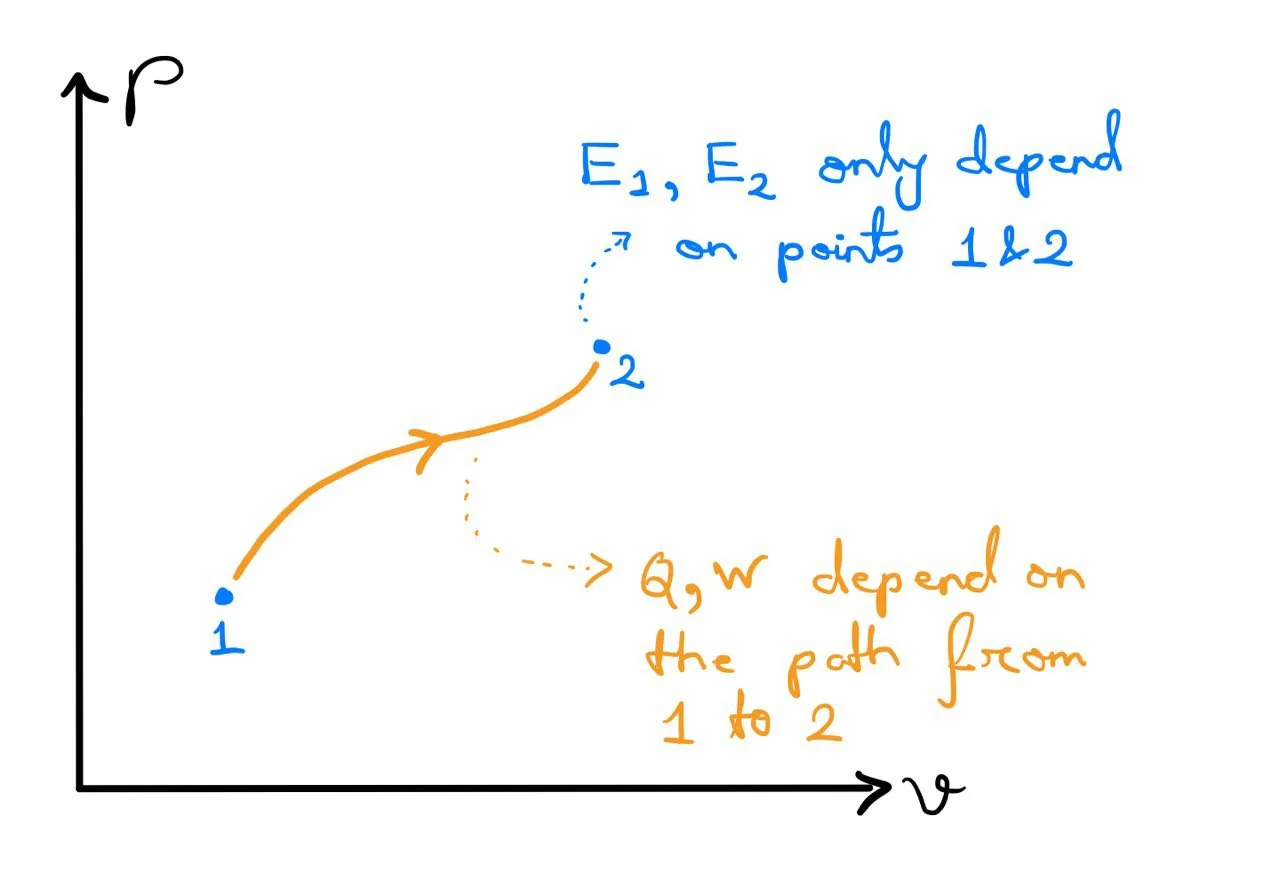 P
E1, E2 only depend
on points 1 & 2
2
1
Q, W depend on
the path from
1 to 2
v